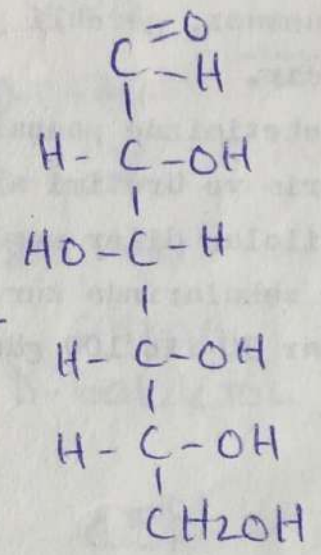 C=O
C-H
H-C-OH
HO-C-H
H-C-OH
H-C-OH
CH2OH